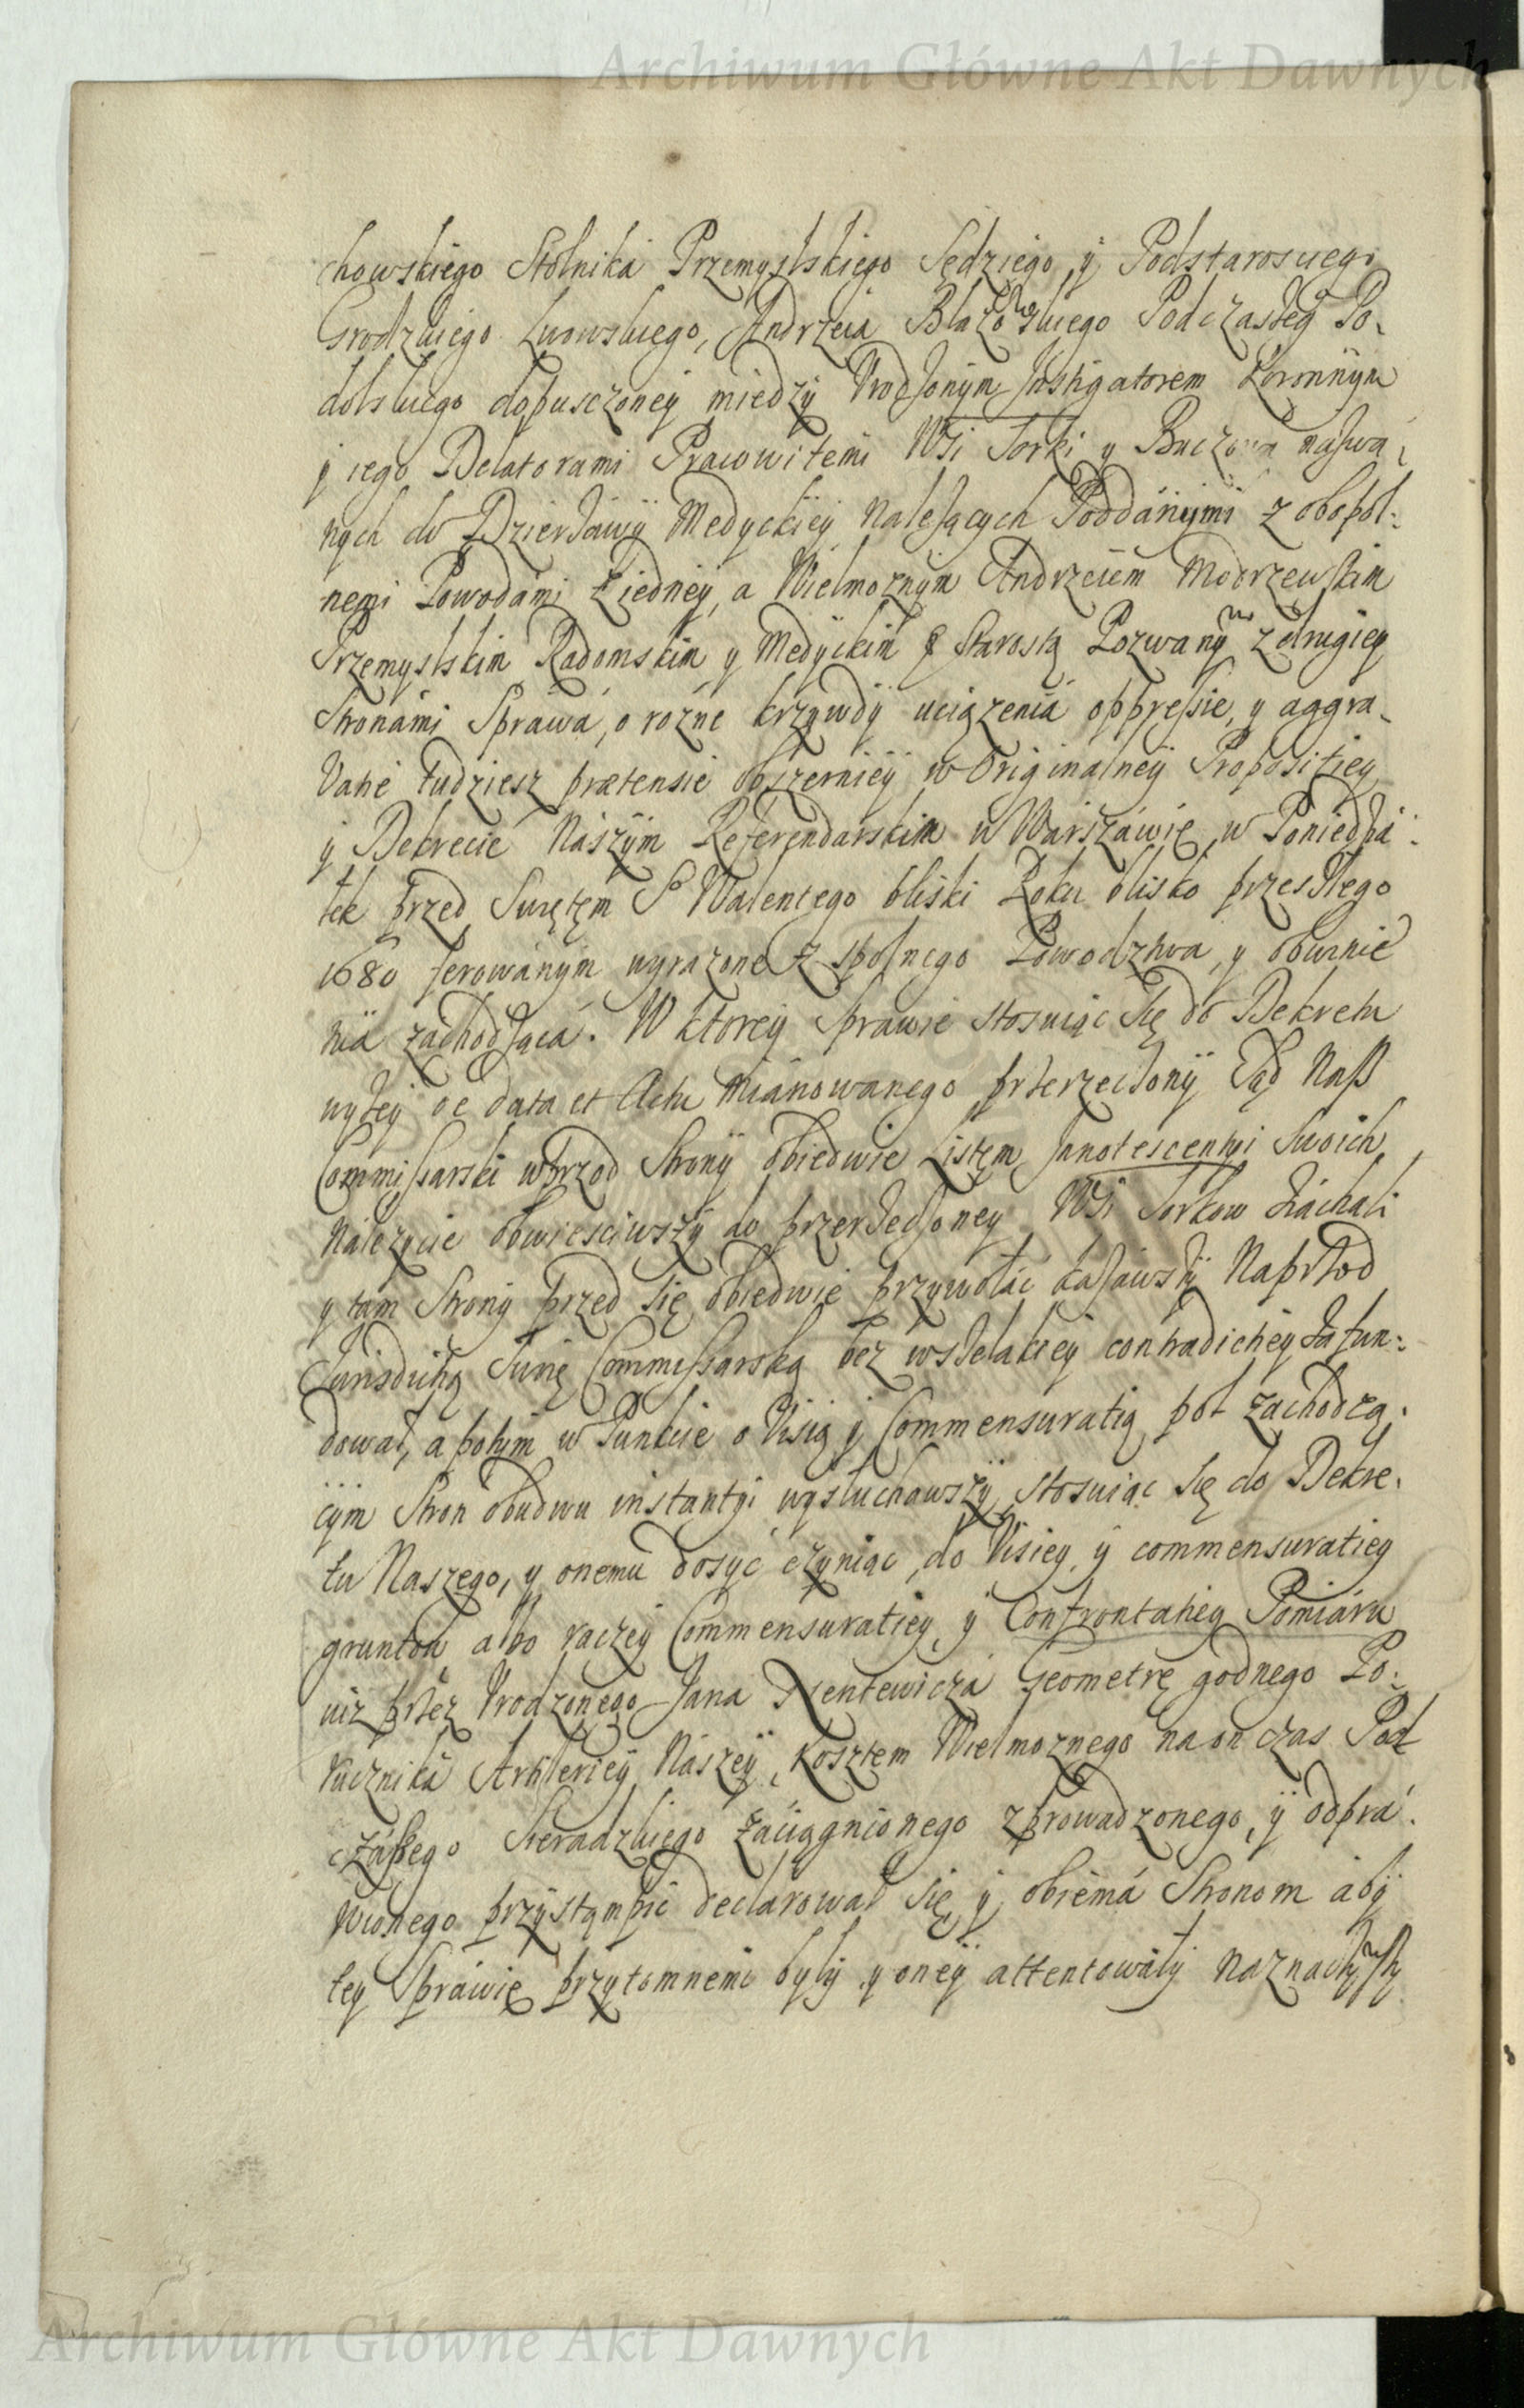 Archiwum Główne Akt Dawnych
chowskiego Stolnika Przemyslskiego Sędziego y Podstarosciego
Grodzkiego Lwowskiego, Andrzeia Błazowskiego Podczaszeg Po-
dolskiego dopusczoney między Urodzonym Instigatorem Koronnym
y iego Delatorami Pracowitemi Wsi Torki y Buczowa nazwa-
nych do Dzierżawy Medyckiey należących Poddanymi z obopol-
nemi Powodami z iedney, a Wielmoznym Andrzeiem Modrzewskim
Przemyslskim Radomskim y Medyckim Starostą Pozwanym z drugiey
Stronami Sprawa, o rozne krzywdy uciązenia oppressie, y aggra-
vatie tudziesz prætensie obszerniey w Originalney Propositiey
y Dekrecie Naszym Referendarskim w Warszawie w Poniedzia-
łek przed Swiętem S Walentego bliski Roku blisko przeszłego
1680 ferowanym wyrazone z spolnego Powodztwa, y obwinie
nia zachodząca. W ktorey sprawie stosuiąc się do Dekretu
wyżey de data et Actu mianowanego przerzeczony Sąd Nasz
Commissarski wprzod Strony obiedwie Listem Innotescentyi Swoich
należycie obwiesciwszy do przerzeczoney Wsi Torkow ziachali
y tam Strony przed się obiedwie przywołac kazawszy Naprzod
Jurisdictią Swię Commissarską bez wszelakiey contradictiey zafun-
dował, a potym w Punkcie o Visią y Commensuratią pol zachodzą-
cym Stron obudwu instantyi wysłuchawszy stosuiąc się do Dekre-
tu Naszego, y onemu dosyć czyniąc, do Visiey y commensuratiey
gruntow albo raczey Commensuratiey y Confrontatiey Pomiaru
iuz przez Urodzonego Jana Xentewicza Geometrę godnego Po-
rucznika Artileriey Naszey, kosztem Wielmoznego na on czas Pod
czaszego Sieradzkiego zaciągnionego zprowadzonego, y odpra-
wionego przystąmpic declarował się y obiema Stronom aby
tey Sprawie przytomnemi były y oney attentowały naznaczywszy
Archiwum Główne Akt Dawnych